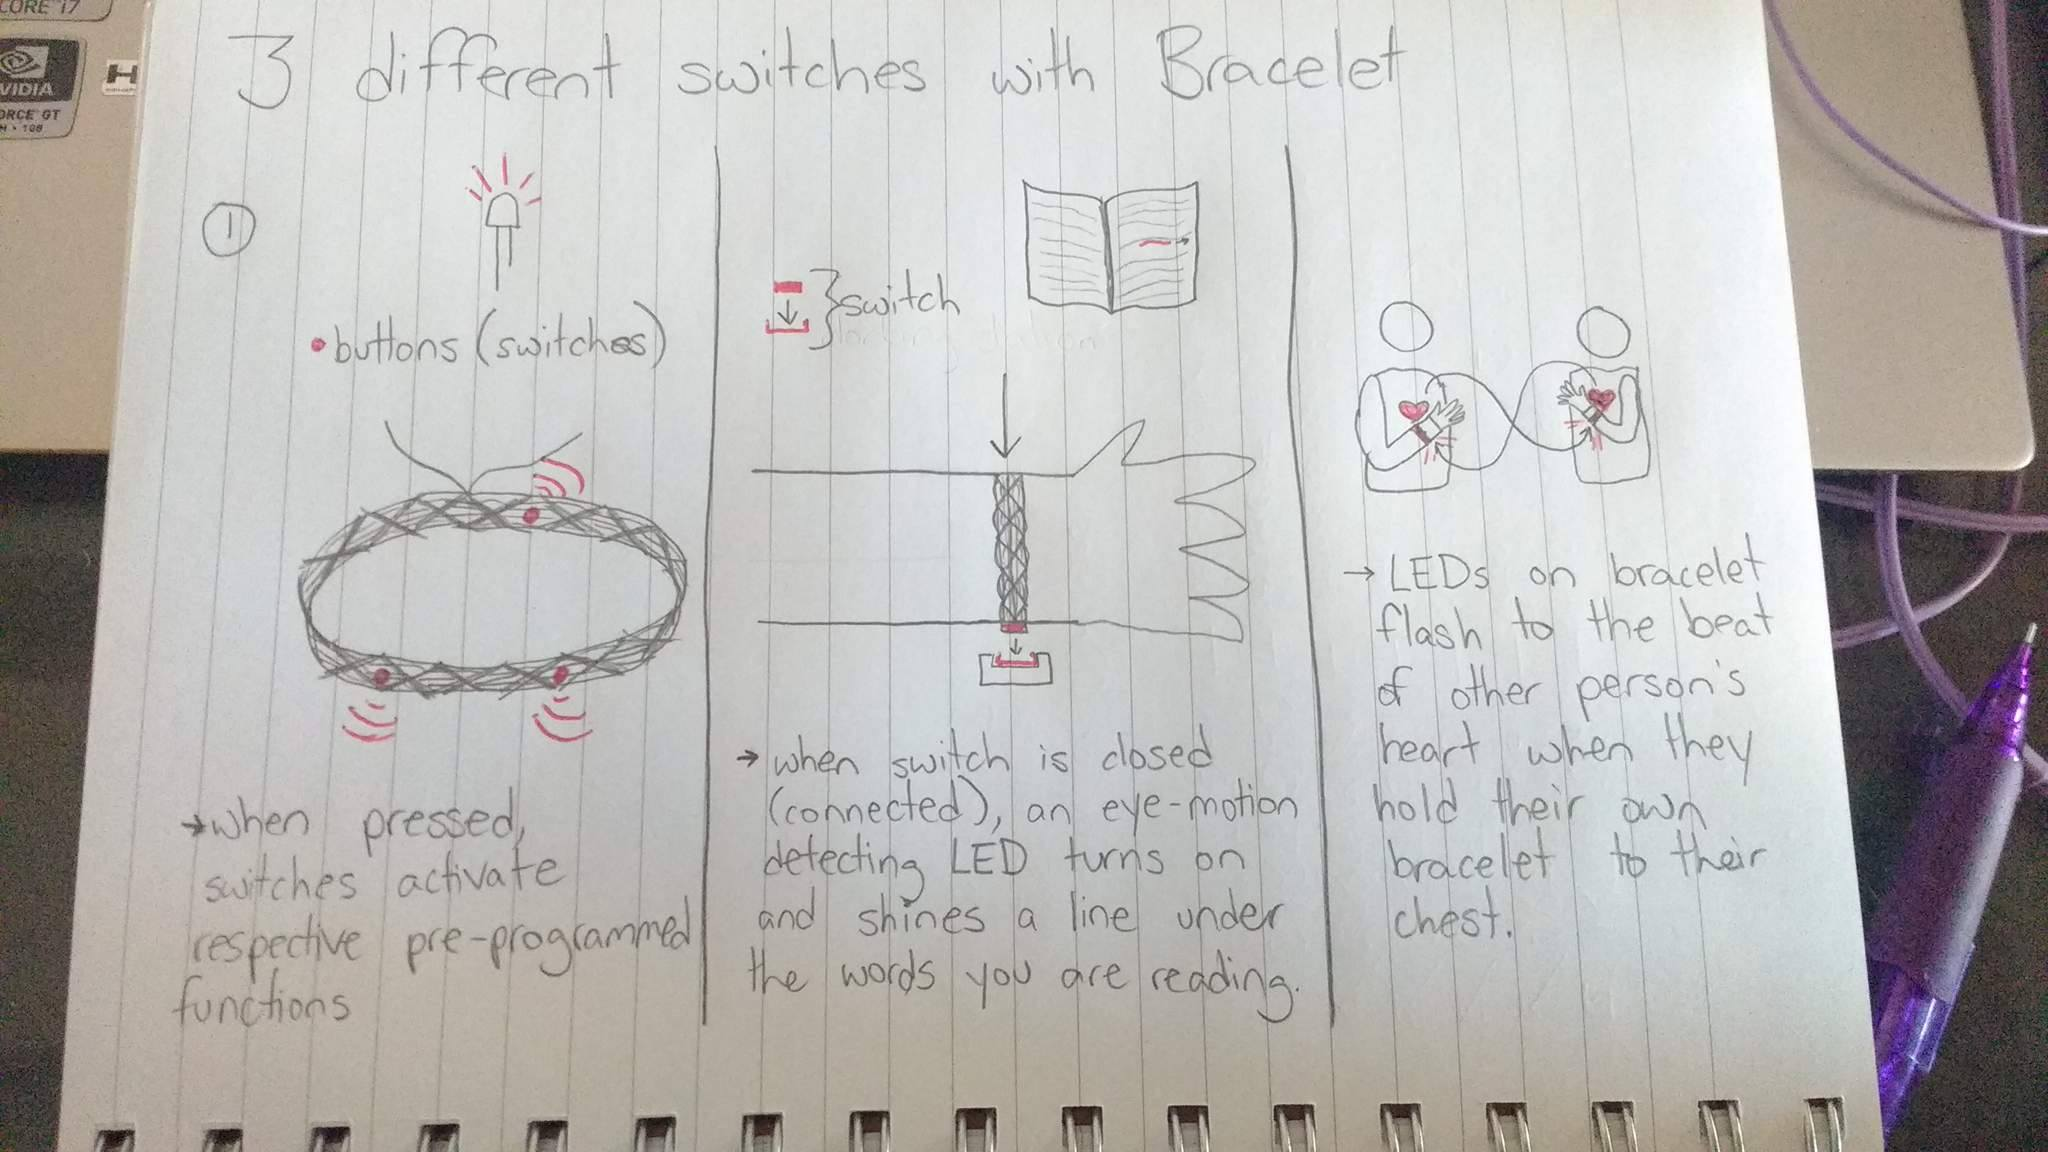 CORE i7
NVIDIA
3 different switches with Bracelet
1
buttons (switches)
→ when pressed,
switches activate
respective pre-programmed
functions
switch
→ when switch is closed
(connected), an eye-motion
detecting LED turns on
and shines a line under
the words you are reading.
→ LEDs on bracelet
flash to the beat
of other person's
heart when they
hold their own
bracelet to their
chest.